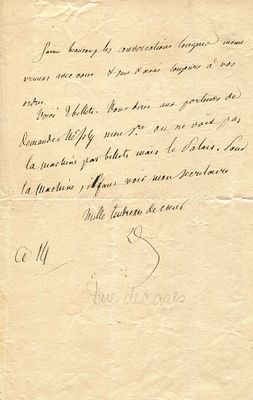 J'aime beaucoup les conversations longues même
avec vous & suis à vous toujours à vos
ordres.
Voici 2 billets. Vous direz aux porteurs de
demander M. Joly mon Sre on ne voit pas
la machine par billets mais le Palais. Pour
la machine, il faut voir mon secrétaire
Mille tendresses de cœur
Ce 14
Duc decazes